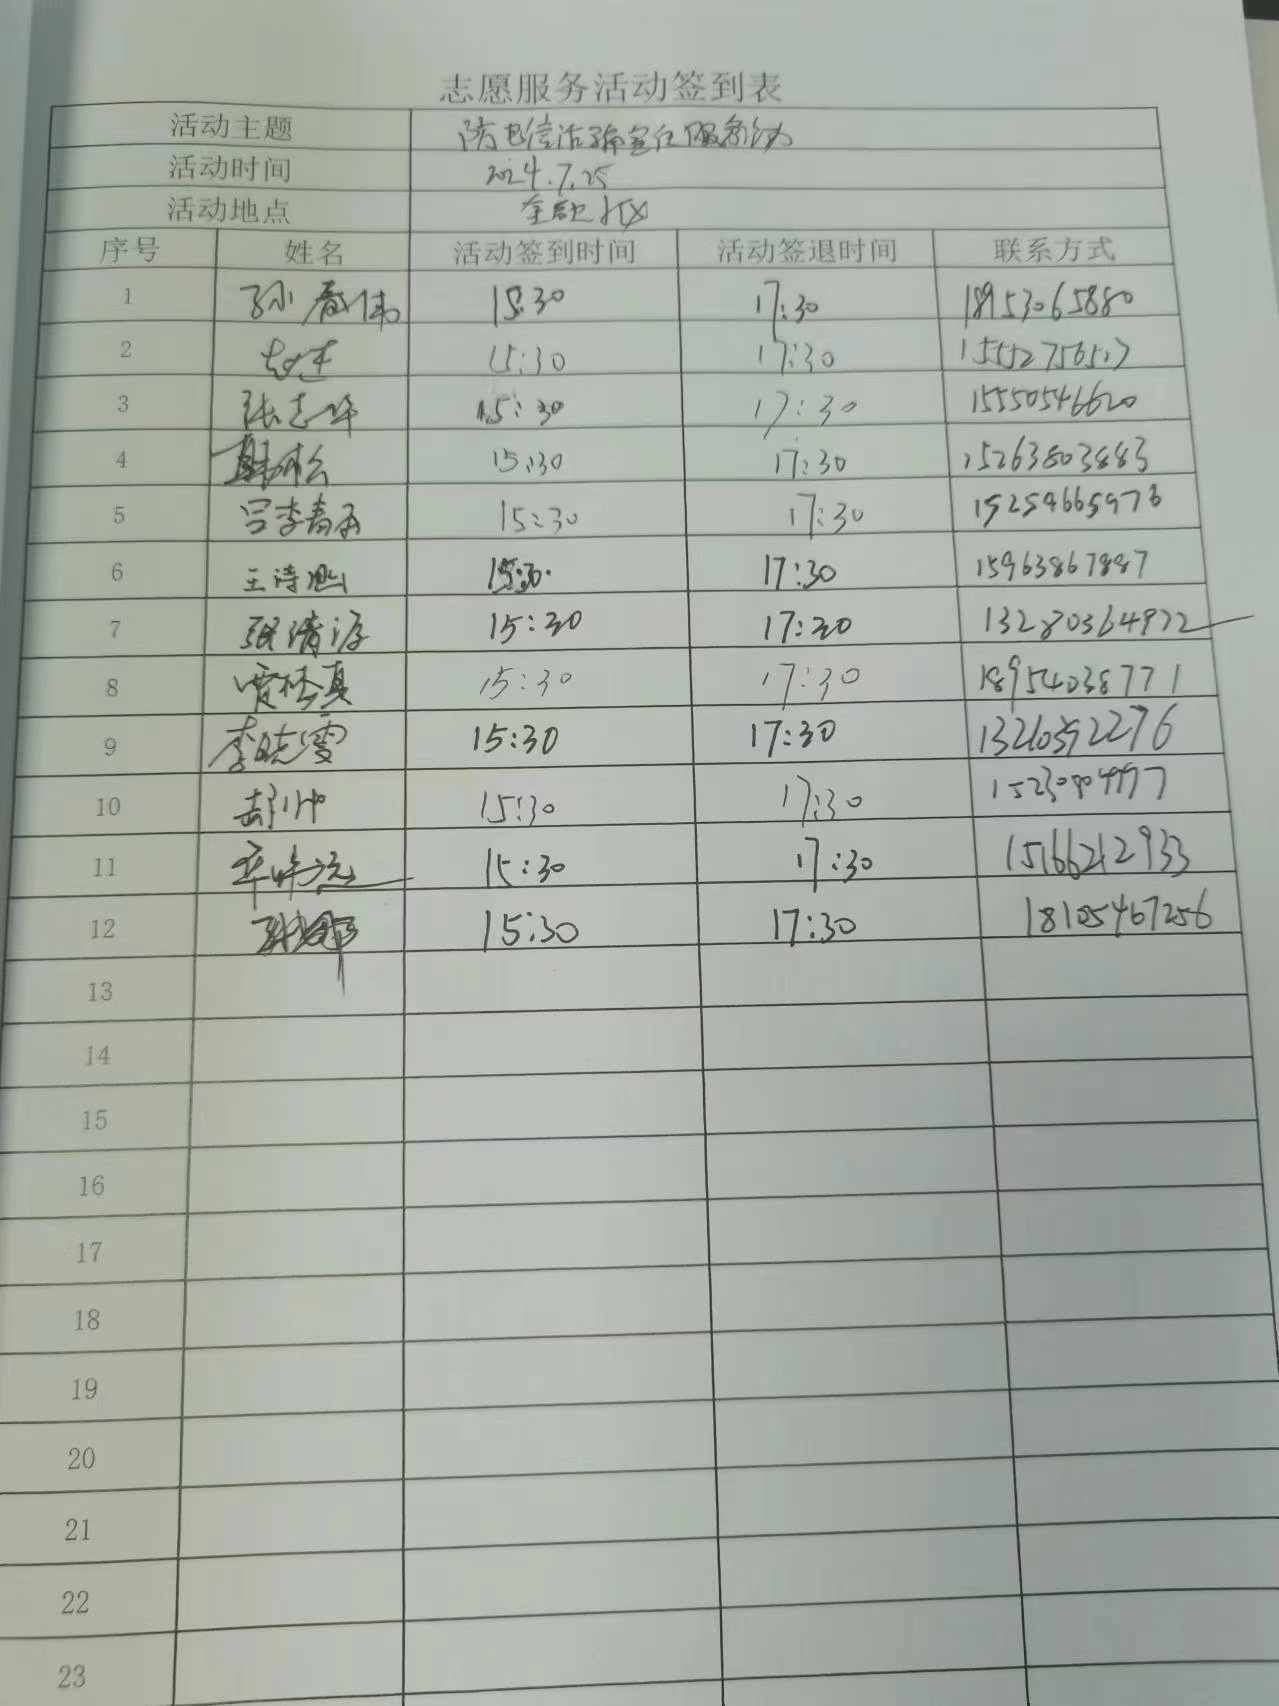 志愿服务活动签到表
活动主题 防电信诈骗宣传服务活动
活动时间 2024.7.25
活动地点 金融社区
序号 姓名 活动签到时间 活动签退时间 联系方式
1 孙春伟 15:30 17:30 18953065880
2 赵进 15:30 17:30
3 张志华 15:30 17:30 15550546620
4 15:30 17:30 15263803883
5 吕李春雨 15:30 17:30 15254665976
6 王诗 15:30 17:30 15963867887
7 张清源 15:30 17:30 13280364922
8 贾梦真 15:30 17:30 18954038771
9 李晓雯 15:30 17:30
10 郝帅 15:30 17:30
11 15:30 17:30 15166212933
12 15:30 17:30 18105467256
13
14
15
16
17
18
19
20
21
22
23